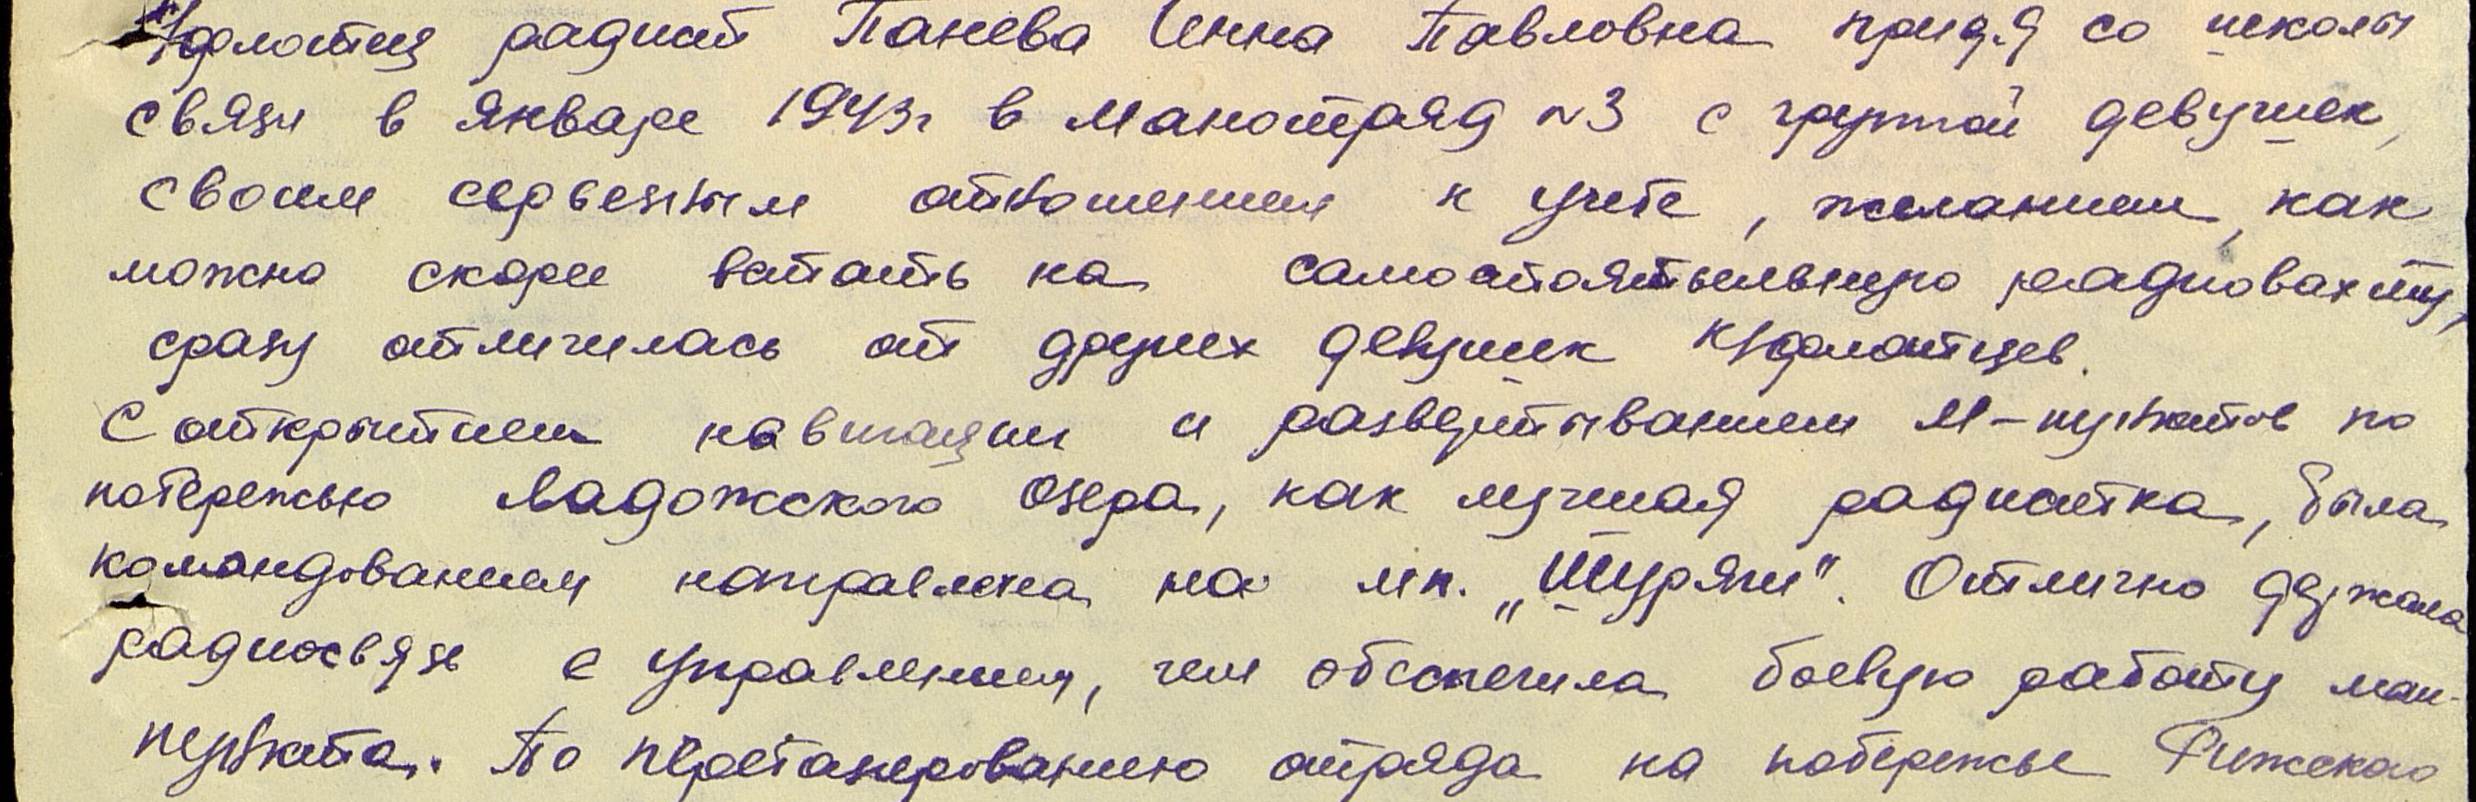 К/флотец радист Панева Инна Павловна придя со школы
связи в январе 1943г в Манотряд №3 с группой девушек,
своим серьезным отношением к учебе, желанием, как
можно скорее встать на самостоятельную радиовахту,
сразу отличилась от других девушек к/флотцев.
С открытием навигации и развертыванием М-пунктов по
побережью Ладожского озера, как лучшая радистка, была
командованием направлена на мп. „Шуряги". Отлично держала
радиосвязь с управлением, чем обеспечила боевую работу ман-
пункта. По перебазированию отряда на побережье Рижского